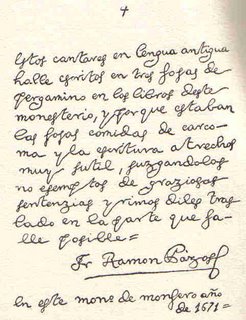 4
estos cantares en lengua antigua
halle escritos en tres fojas de
pergamino en los libros deste
monesterio, y porque estaban
las fojas comidas de carco-
ma y la escritura a trechos
muy sutil, juzgandolos
no esemptos de graziosas
sentenzias y rimos diles tras
lado en la parte que ha-
lle posille=
Fr Ramon
en este mons de monfero año
de 1671=